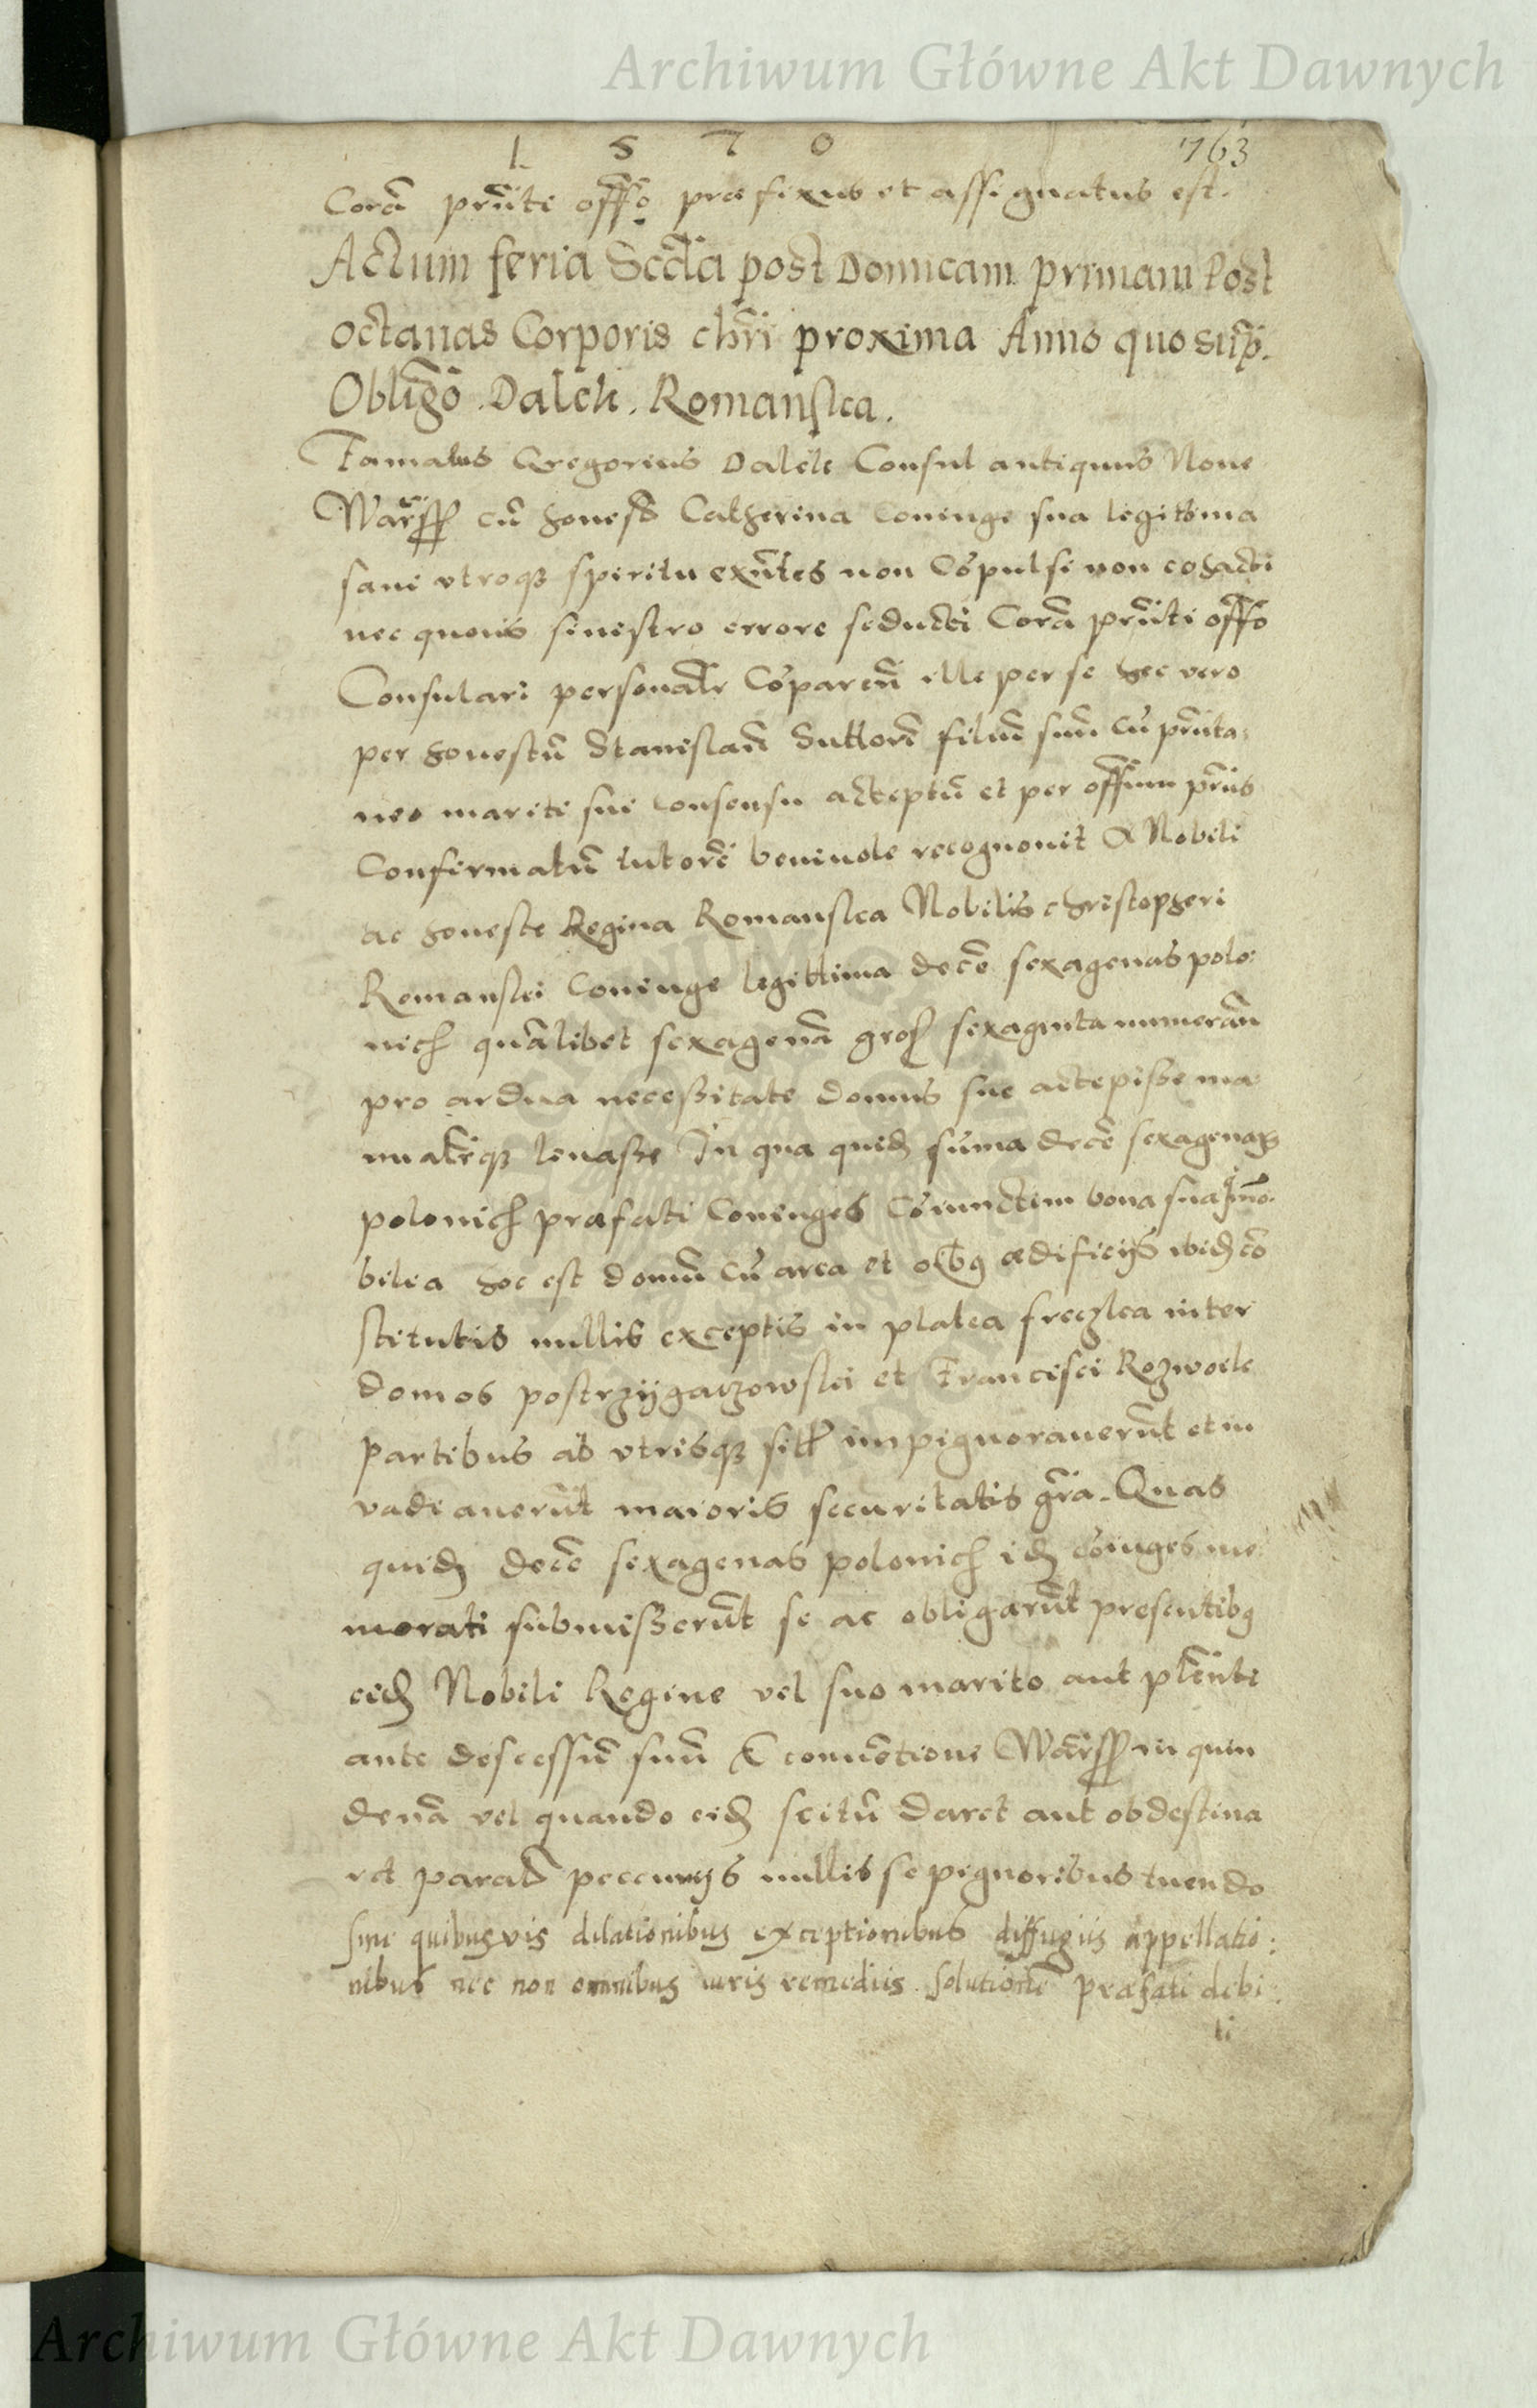 Archiwum Główne Akt Dawnych
1 5 7 0
763
Corã pr̃nte off̃o præfixus et assignatus est.
Actum feria Sec̃da post Domi̅cam primam Post
octauas Corporis chr̃i proxima Anno quo sup̃.
Oblig̃o Dalek. Romanska.
Famatus Gregorius Dalek Consul antiquus Noue
Warss cũ honesta Catherina Coniuge sua legittima
sani vtroq3 spiritu exñtes non Cõpulsi non cohacti
nec quouis sinistro errore seducti Corã pr̃nti off̃o
Consulari personal̃r Cõpareñ ille per se hec vero
per honestũ Stanislaũ Suttorẽ filiũ suũ cũ pr̃nta:
neo mariti sui consensu acceptũ et per offi̅um pr̃ns
Confirmatũ tutorẽ beniuole recognouit A Nobili
ac honeste Regina Romanska Nobilis christopheri
Romanski Coniuge legittima decẽ sexagenas polo:
nich quãlibet sexagenã gros sexaginta numerãn
pro ardua necessitate domus sue accepisse ma
nualr̃q3 leuasse In qua quid sũma decẽ sexagenar
polonich præfati Coniuges Cõiunctim bona sua im̃o.
bilia hoc est domũ cũ area et oĩbq ædificiis ibid cõ
stitutis nullis exceptis in platea freczka inter
domos postrzygaczowski et Francisci Rozwoik
partibus ab vtrisq3 sitt impignorauerũt et in
vadiauerũt maioris securitatis gr̃a. Quas
quid decẽ sexagenas polonich id cõiuges me:
morati submisserũt se ac obligarũt presentibq
eid Nobili Regine vel suo marito aut pleñte
ante descessũ suũ E conuẽtione Warss in quin
denã vel quando eid scitũ daret aut obdestina
ret parat peccuniis nullis se pignoribus tuendo
sine quibusvis dilationibus exceptionibus diffugiis appellatio:
nibus nec non omnibus iuris remediis. Solutionẽ præfati debi:
ti
Archiwum Główne Akt Dawnych